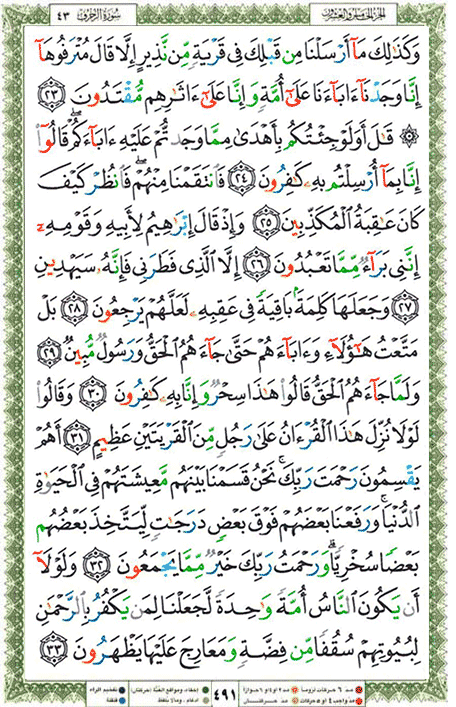 سورة الزخرف ٤٣ الجزء الخامس والعشرون
وَكَذَٰلِكَ مَآ أَرۡسَلۡنَا مِن قَبۡلِكَ فِي قَرۡيَةٖ مِّن نَّذِيرٍ إِلَّا قَالَ مُتۡرَفُوهَآ
إِنَّا وَجَدۡنَآ ءَابَآءَنَا عَلَىٰٓ أُمَّةٖ وَإِنَّا عَلَىٰٓ ءَاثَٰرِهِم مُّقۡتَدُونَ ٢٣
۞ قَٰلَ أَوَلَوۡ جِئۡتُكُم بِأَهۡدَىٰ مِمَّا وَجَدتُّمۡ عَلَيۡهِ ءَابَآءَكُمۡۖ قَالُوٓاْ
إِنَّا بِمَآ أُرۡسِلۡتُم بِهِۦ كَٰفِرُونَ ٢٤ فَٱنتَقَمۡنَا مِنۡهُمۡۖ فَٱنظُرۡ كَيۡفَ
كَانَ عَٰقِبَةُ ٱلۡمُكَذِّبِينَ ٢٥ وَإِذۡ قَالَ إِبۡرَٰهِيمُ لِأَبِيهِ وَقَوۡمِهِۦٓ
إِنَّنِي بَرَآءٞ مِّمَّا تَعۡبُدُونَ ٢٦ إِلَّا ٱلَّذِي فَطَرَنِي فَإِنَّهُۥ سَيَهۡدِينِ
٢٧ وَجَعَلَهَا كَلِمَةَۢ بَاقِيَةٗ فِي عَقِبِهِۦ لَعَلَّهُمۡ يَرۡجِعُونَ ٢٨ بَلۡ
مَتَّعۡتُ هَٰٓؤُلَآءِ وَءَابَآءَهُمۡ حَتَّىٰ جَآءَهُمُ ٱلۡحَقُّ وَرَسُولٞ مُّبِينٞ ٢٩
وَلَمَّا جَآءَهُمُ ٱلۡحَقُّ قَالُواْ هَٰذَا سِحۡرٞ وَإِنَّا بِهِۦ كَٰفِرُونَ ٣٠ وَقَالُواْ
لَوۡلَا نُزِّلَ هَٰذَا ٱلۡقُرۡءَانُ عَلَىٰ رَجُلٖ مِّنَ ٱلۡقَرۡيَتَيۡنِ عَظِيمٍ ٣١ أَهُمۡ
يَقۡسِمُونَ رَحۡمَتَ رَبِّكَۚ نَحۡنُ قَسَمۡنَا بَيۡنَهُم مَّعِيشَتَهُمۡ فِي ٱلۡحَيَوٰةِ
ٱلدُّنۡيَاۚ وَرَفَعۡنَا بَعۡضَهُمۡ فَوۡقَ بَعۡضٖ دَرَجَٰتٖ لِّيَتَّخِذَ بَعۡضُهُم
بَعۡضٗا سُخۡرِيّٗاۗ وَرَحۡمَتُ رَبِّكَ خَيۡرٞ مِّمَّا يَجۡمَعُونَ ٣٢ وَلَوۡلَآ
أَن يَكُونَ ٱلنَّاسُ أُمَّةٗ وَٰحِدَةٗ لَّجَعَلۡنَا لِمَن يَكۡفُرُ بِٱلرَّحۡمَٰنِ
لِبُيُوتِهِمۡ سُقُفٗا مِّن فِضَّةٖ وَمَعَارِجَ عَلَيۡهَا يَظۡهَرُونَ ٣٣
٤٩١
مد ٦ حركات لزوماً مد ٢ او ٤ او ٦ جوازاً إخفاء، ومواقع الغنة (حركتان) تفخيم الراء
مد واجب ٤ او ٥ حركات مد حركتان إدغام، ومالا يلفظ قلقلة